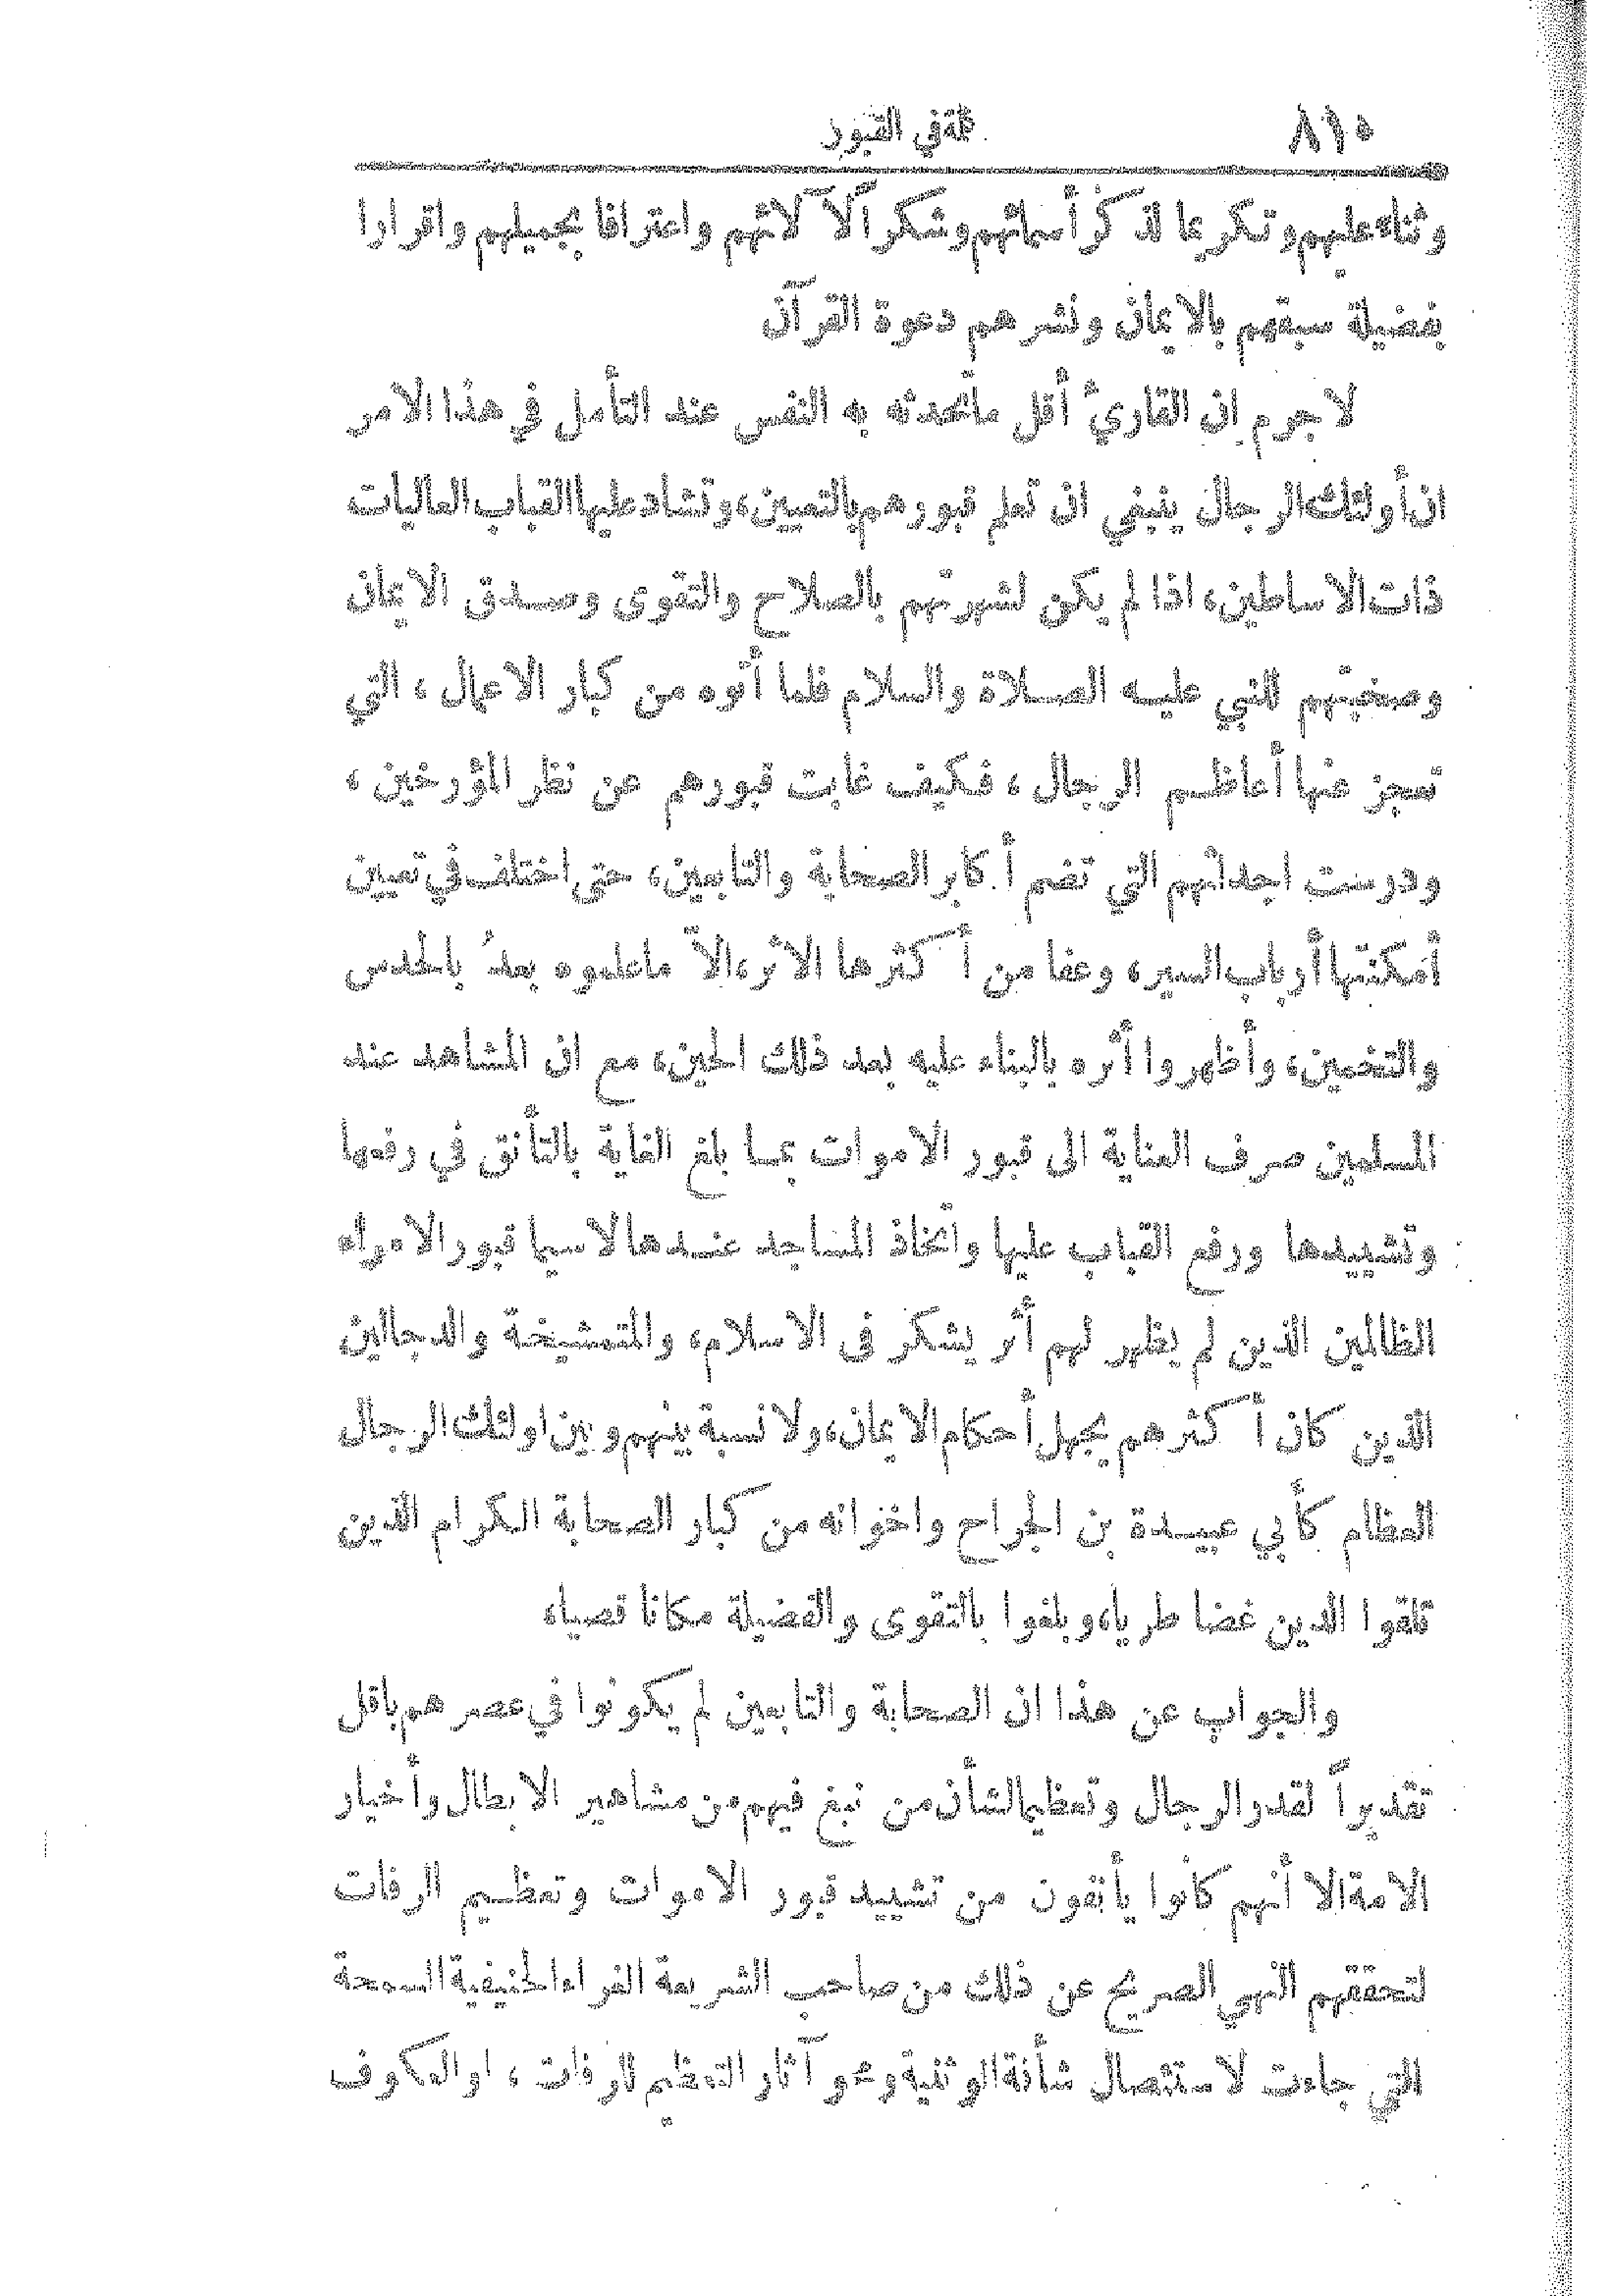 ٨١٠ كلمة في القبور
وثناء عليهم وتكريما لذكر أسمائهم وشكراً لآلائهم واعترافا بجميلهم واقرارا
بفضيلة سبقهم بالايمان ونشرهم دعوة القرآن
لاجرم ان القارئ أقل ماتحدثه به النفس عند التأمل في هذا الامر
ان أولئك الرجال ينبغي ان تعلم قبورهم بالتعيين، وتشاد عليها القباب العاليات
ذات الاساطين، اذا لم يكن لشهرتهم بالصلاح والتقوى وصدق الايمان
وصحبتهم للنبي عليه الصلاة والسلام فلما أتوه من كبار الاعمال ، التي
تعجز عنها أعاظم الرجال ، فكيف غابت قبورهم عن نظر المؤرخين ،
ودرست اجداثهم التي تضم أكابر الصحابة والتابعين، حتى اختلف في تعيين
أمكنتها أرباب السير، وعفا من أكثرها الاثر، الاّ ماعلموه بعدُ بالحدس
والتخمين، وأظهروا أثره بالبناء عليه بعد ذلك الحين، مع ان المشاهد عند
المسلمين صرف العناية الى قبور الاموات بما بلغ الغاية بالتأنق في رفعها
وتشييدها ورفع القباب عليها واتخاذ المساجد عندها لاسيما قبور الامراء
الظالمين الذين لم يظهر لهم أثر يشكر فى الاسلام، والمتمشيخة والدجالين
الذين كان أكثرهم يجهل أحكام الايمان، ولا نسبة بينهم وبين اولئك الرجال
العظام كأبي عبيدة بن الجراح واخوانه من كبار الصحابة الكرام الذين
تلقوا الدين غضا طريا، وبلغوا بالتقوى والفضيلة مكانا قصيا،
والجواب عن هذا ان الصحابة والتابعين لم يكونوا في عصرهم باقل
تقديراً لقدر الرجال وتعظيما لشأن من نبغ فيهم من مشاهير الابطال وأخيار
الامة الا أنهم كانوا يأنفون من تشييد قبور الاموات وتعظيم الرفات
لتحققهم النهي الصريح عن ذلك من صاحب الشريعة الغراء الحنيفية السمحة
التي جاءت لاستئصال شأنة الوثنية ومحو آثار التعظيم للرفات ، او العكوف